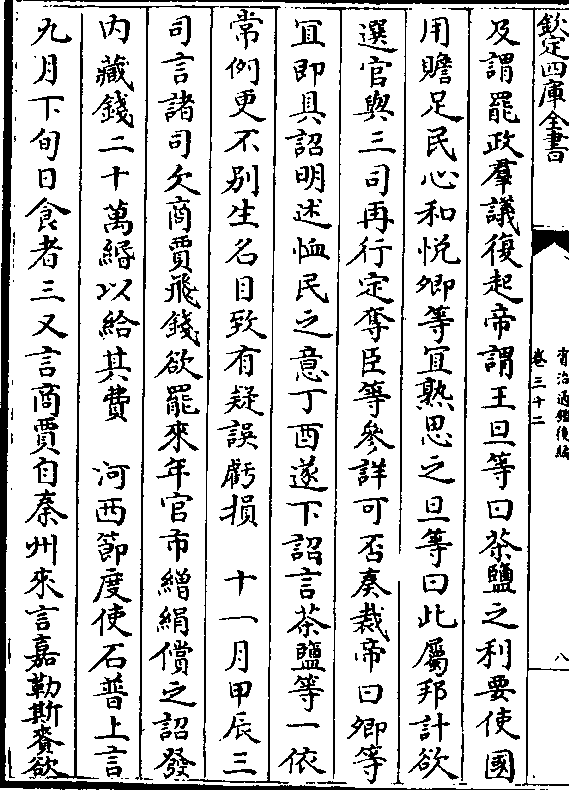 欽定四庫全書
資治通鑑後編
卷三十二
八
及謂罷政羣議復起帝謂王旦等曰茶鹽之利要使國
用贍足民心和悦卿等宜熟思之旦等曰此屬邦計欲
選官與三司再行定奪臣等參詳可否奏裁帝曰卿等
宜即具詔明述恤民之意丁酉遂下詔言茶鹽等一依
常例更不别生名目致有疑誤虧損 十一月甲辰三
司言諸司欠商賈飛錢欲罷來年官市繒絹償之詔發
内藏錢二十萬緡以給其費 河西節度使石普上言
九月下旬日食者三又言商賈自秦州來言嘉勒斯賚欲